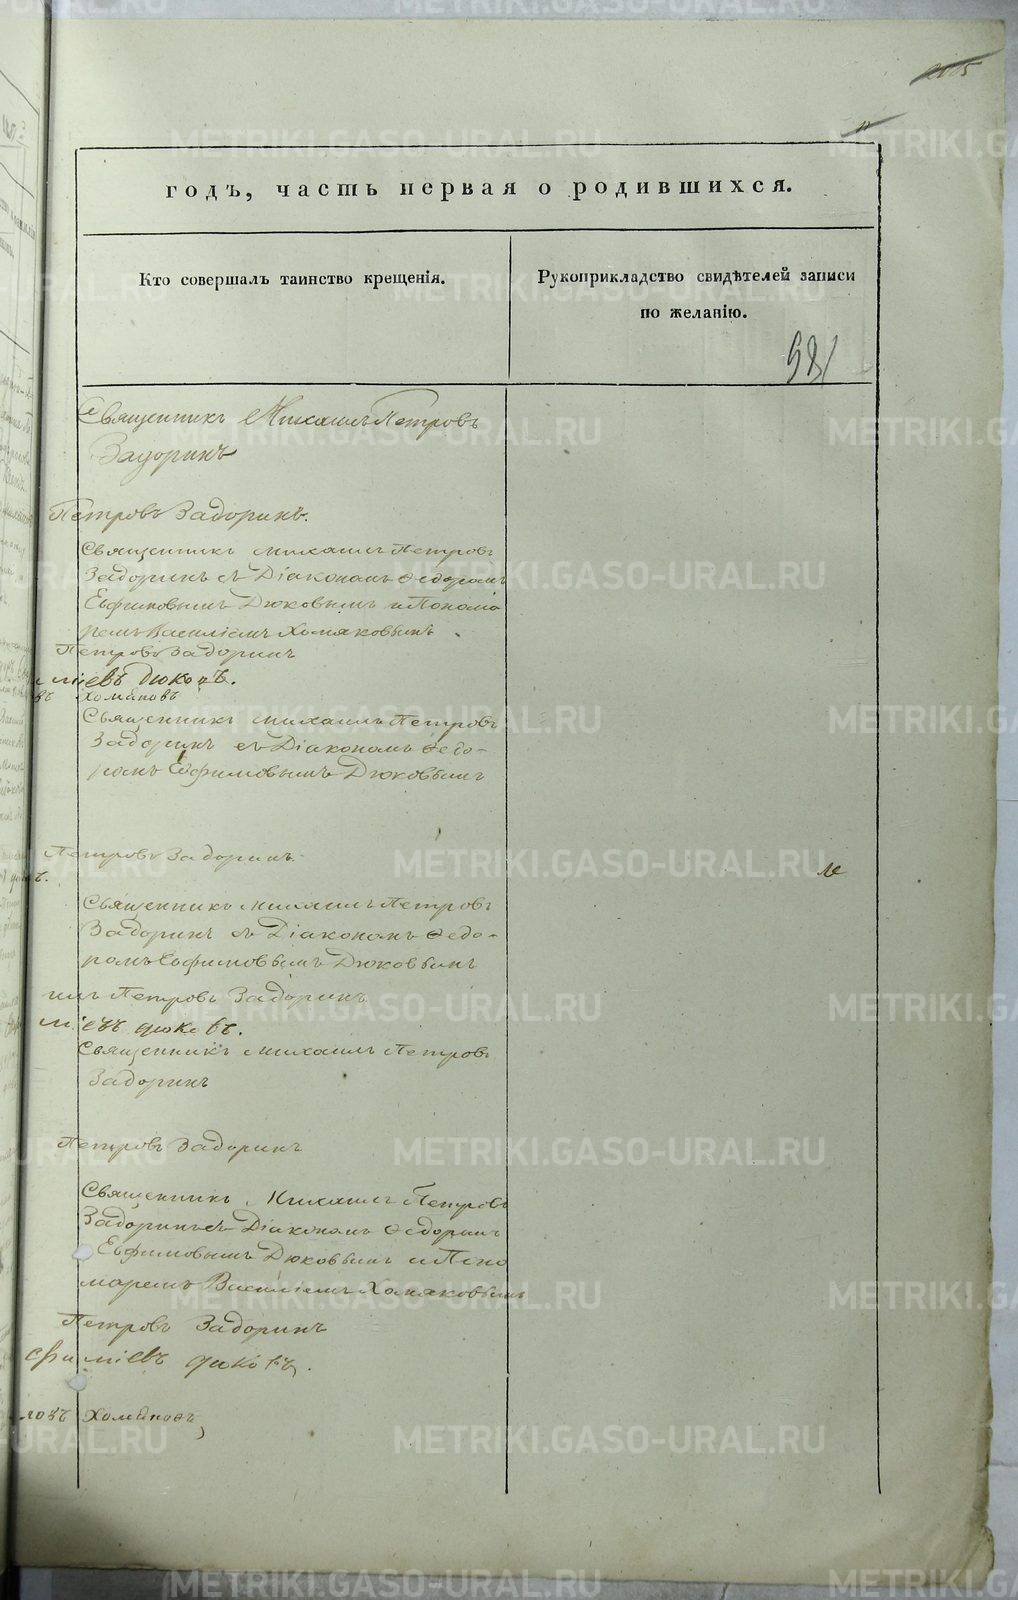 годъ, часть первая о родившихся.
Кто совершалъ таинство крещенія.
Рукоприкладство свидѣтелей записи
по желанію.
581
Священникъ Михаилъ Петровъ
Задоринъ
Петровъ Задоринъ.
Священникъ Михаилъ Петровъ
Задоринъ съ Діакономъ Ѳедоромъ
Евфимовымъ Дюковымъ и Понома
ремъ Василіемъ Хомяковымъ
Петровъ Задоринъ
міевъ Дюковъ.
въ Хомяковъ
Священникъ Михаилъ Петровъ
Задоринъ съ Діакономъ Ѳедо-
ромъ Евфимовымъ Дюковымъ
Петровъ Задоринъ.
ъ.
Священникъ Михаилъ Петровъ
Задоринъ съ Діакономъ Ѳедо-
ромъ Евфимовымъ Дюковымъ
илъ Петровъ Задоринъ
міевъ Дюковъ.
Священникъ Михаилъ Петровъ
Задоринъ
Петровъ Задоринъ
Священникъ Михаилъ Петровъ
Задоринъ съ Діакономъ Ѳедоромъ
Евфимовымъ Дюковымъ и Поно
маремъ Василіемъ Хомяковымъ
Петровъ Задоринъ
Дюковъ.
Хомяковъ
METRIKI.GASO-URAL.RU